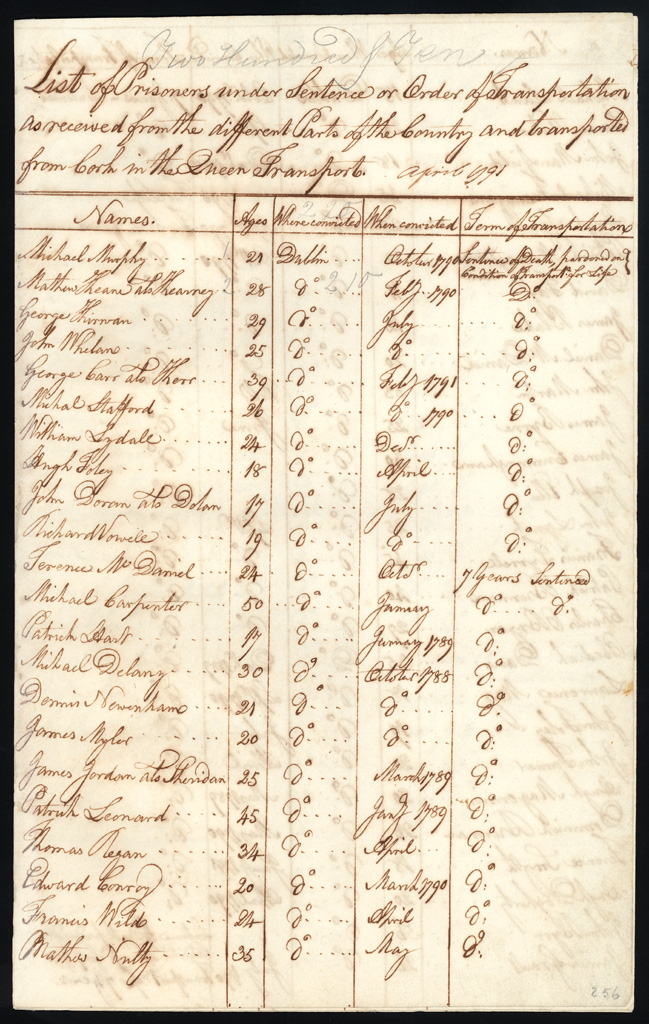 Two Hundred & Ten
List of Prisoners under Sentence or Order of Transportation
as received from the different Parts of the Country and transported
from Cork in the Queen Transport. April 1791
Names. Ages Where convicted When convicted Term of Transportation
Michael Murphy 1 21 Dublin October 1790 Sentence of Death, pardoned on
Condition of Transportn. for Life
Mathew Keane als Kearney 2 28 do. 210 Feby. 1790 Do.
George Kirwan 29 do. July do.
John Whelan 25 do. do. do.
George Carr als Kerr 39 do. Feby 1791 do.
Michal Stafford 26 do. do 1790 do
William Lydale 24 do. Decr. do.
Hugh Foley 18 do. April do.
John Doran als Dolan 17 do. July do.
Richard Vowell 19 do. do. do.
Terence Mc Daniel 24 do. Octr. 7 Years Sentence
Michael Carpenter 50 do. January do. do.
Patrick Hart 17 do. January 1789 do.
Michael Delany 30 do. October 1788 do.
Dennis Newenham 21 do. do. do.
James Myler 20 do. do. do.
James Jordan als Sheridan 25 do. March 1789 do.
Patrick Leonard 45 do. Jany 1789 do.
Thomas Regan 34 do. April do.
Edward Conroy 20 do. March 1790 do.
Francis Wild 24 do. April do.
Mathew Nulty 35 do. May do.
256